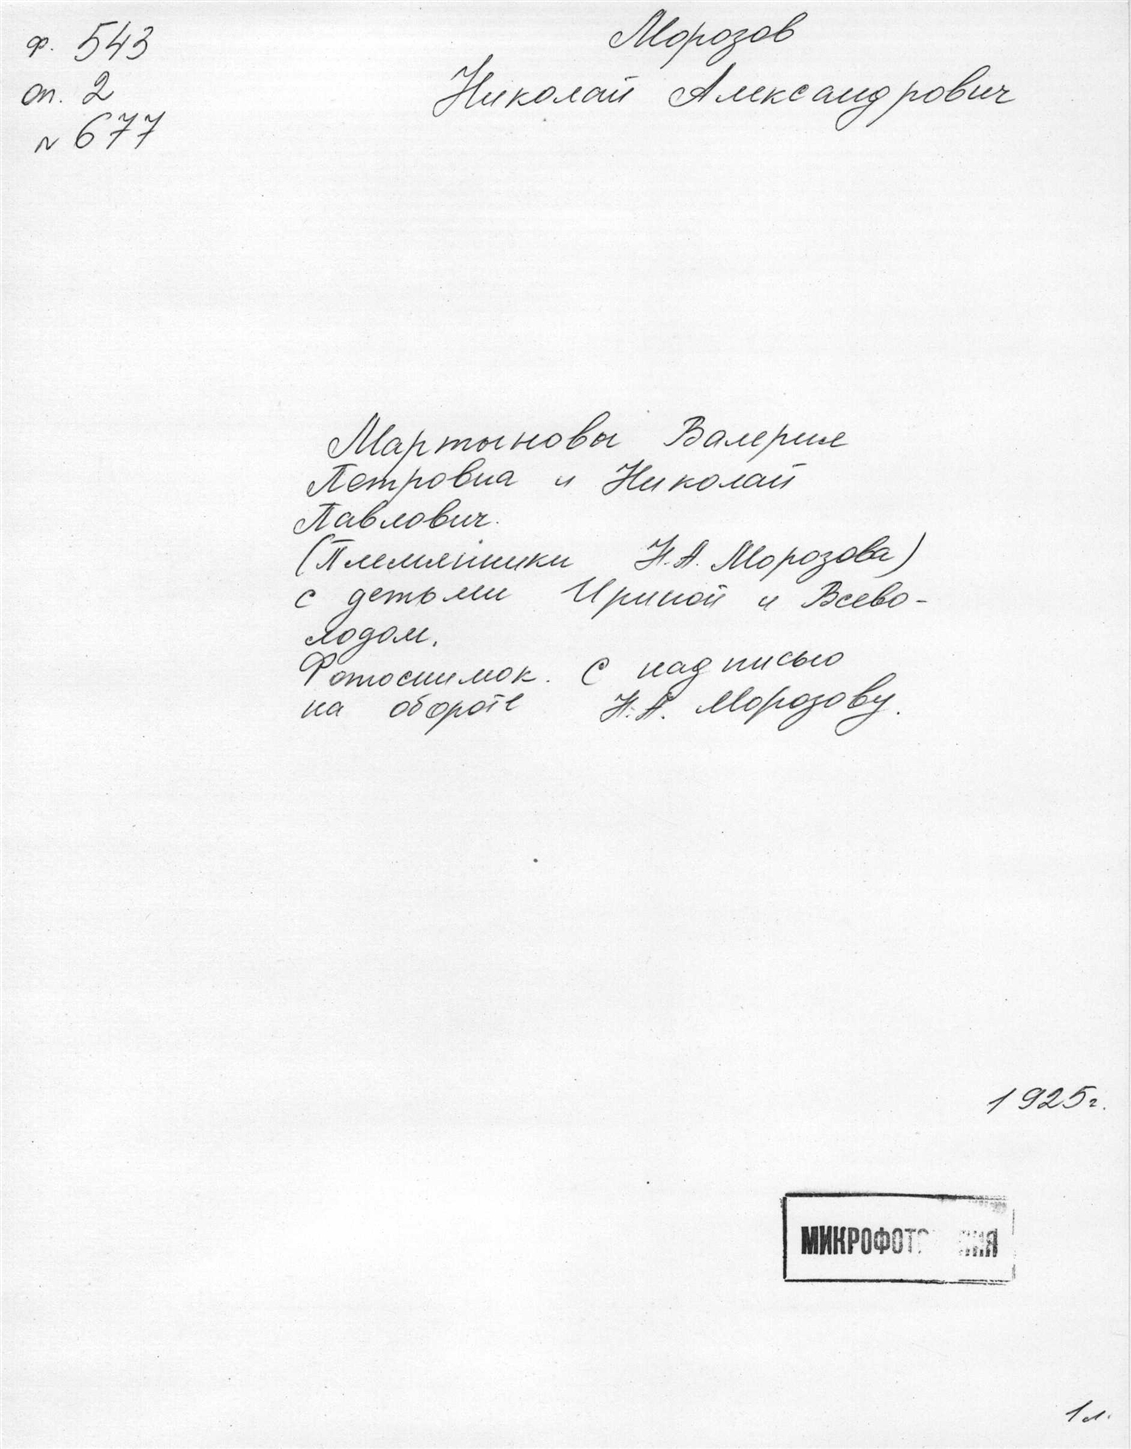 ф. 543
оп. 2
N 677
Морозов
Николай Александрович
Мартыновы Валерия
Петровна и Николай
Павлович.
(Племянники Н.А. Морозова)
с детьми Ириной и Всево-
лодом.
Фотоснимок. С надписью
на обороте Н.А. Морозову.
1925г.
1л.